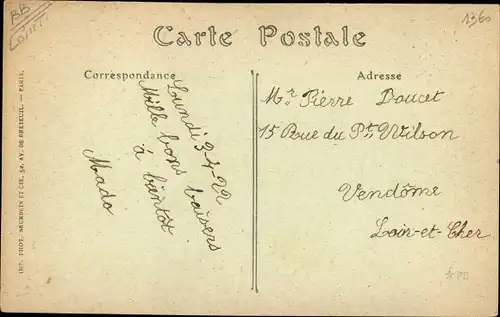 BB
1360
Carte Postale
Correspondance
Adresse
Lundi 3-4-22
Mille bons baisers
à bientôt
Mado
Mr Pierre Doucet
15 Rue du Pt Wilson
Vendôme
Loir-et-Cher
IMP. PHOT. NEURDEIN ET CIE. 52. AV. DE BRETEUIL. — PARIS.